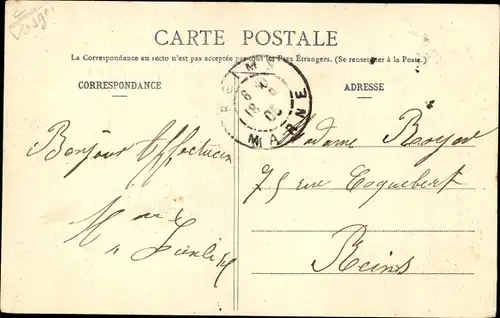 Vosges
CARTE POSTALE
La Correspondance au recto n'est pas acceptée par tous les Pays Étrangers. (Se renseigner à la Poste.)
CORRESPONDANCE
ADRESSE
REIMS
MARNE
Bonjour Affectueux
Madame Royal
75 rue Coquebert
Reims